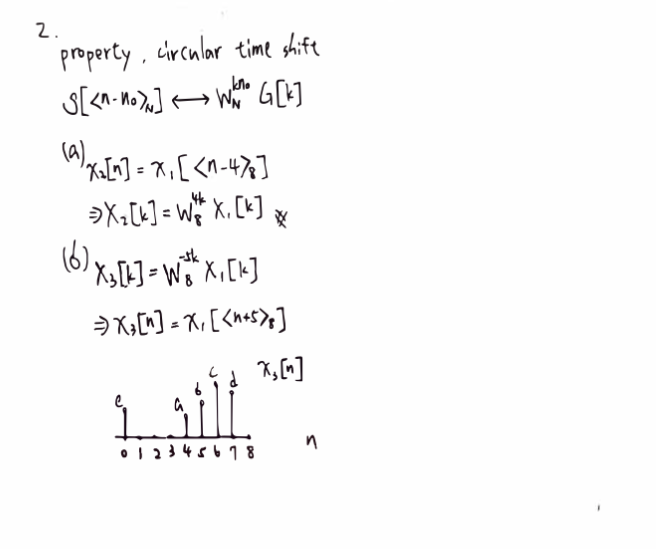 2.
property, circular time shift
g[<n-n₀>_N] ⟷ W_N^{kn₀} G[k]
(a) x₂[n] = x₁[<n-4>₈]
⇒ X₂[k] = W₈^{4k} X₁[k] ※
(b) X₃[k] = W₈^{-5k} X₁[k]
⇒ x₃[n] = x₁[<n+5>₈]
e a b c d x₃[n]
0 1 2 3 4 5 6 7 8 n